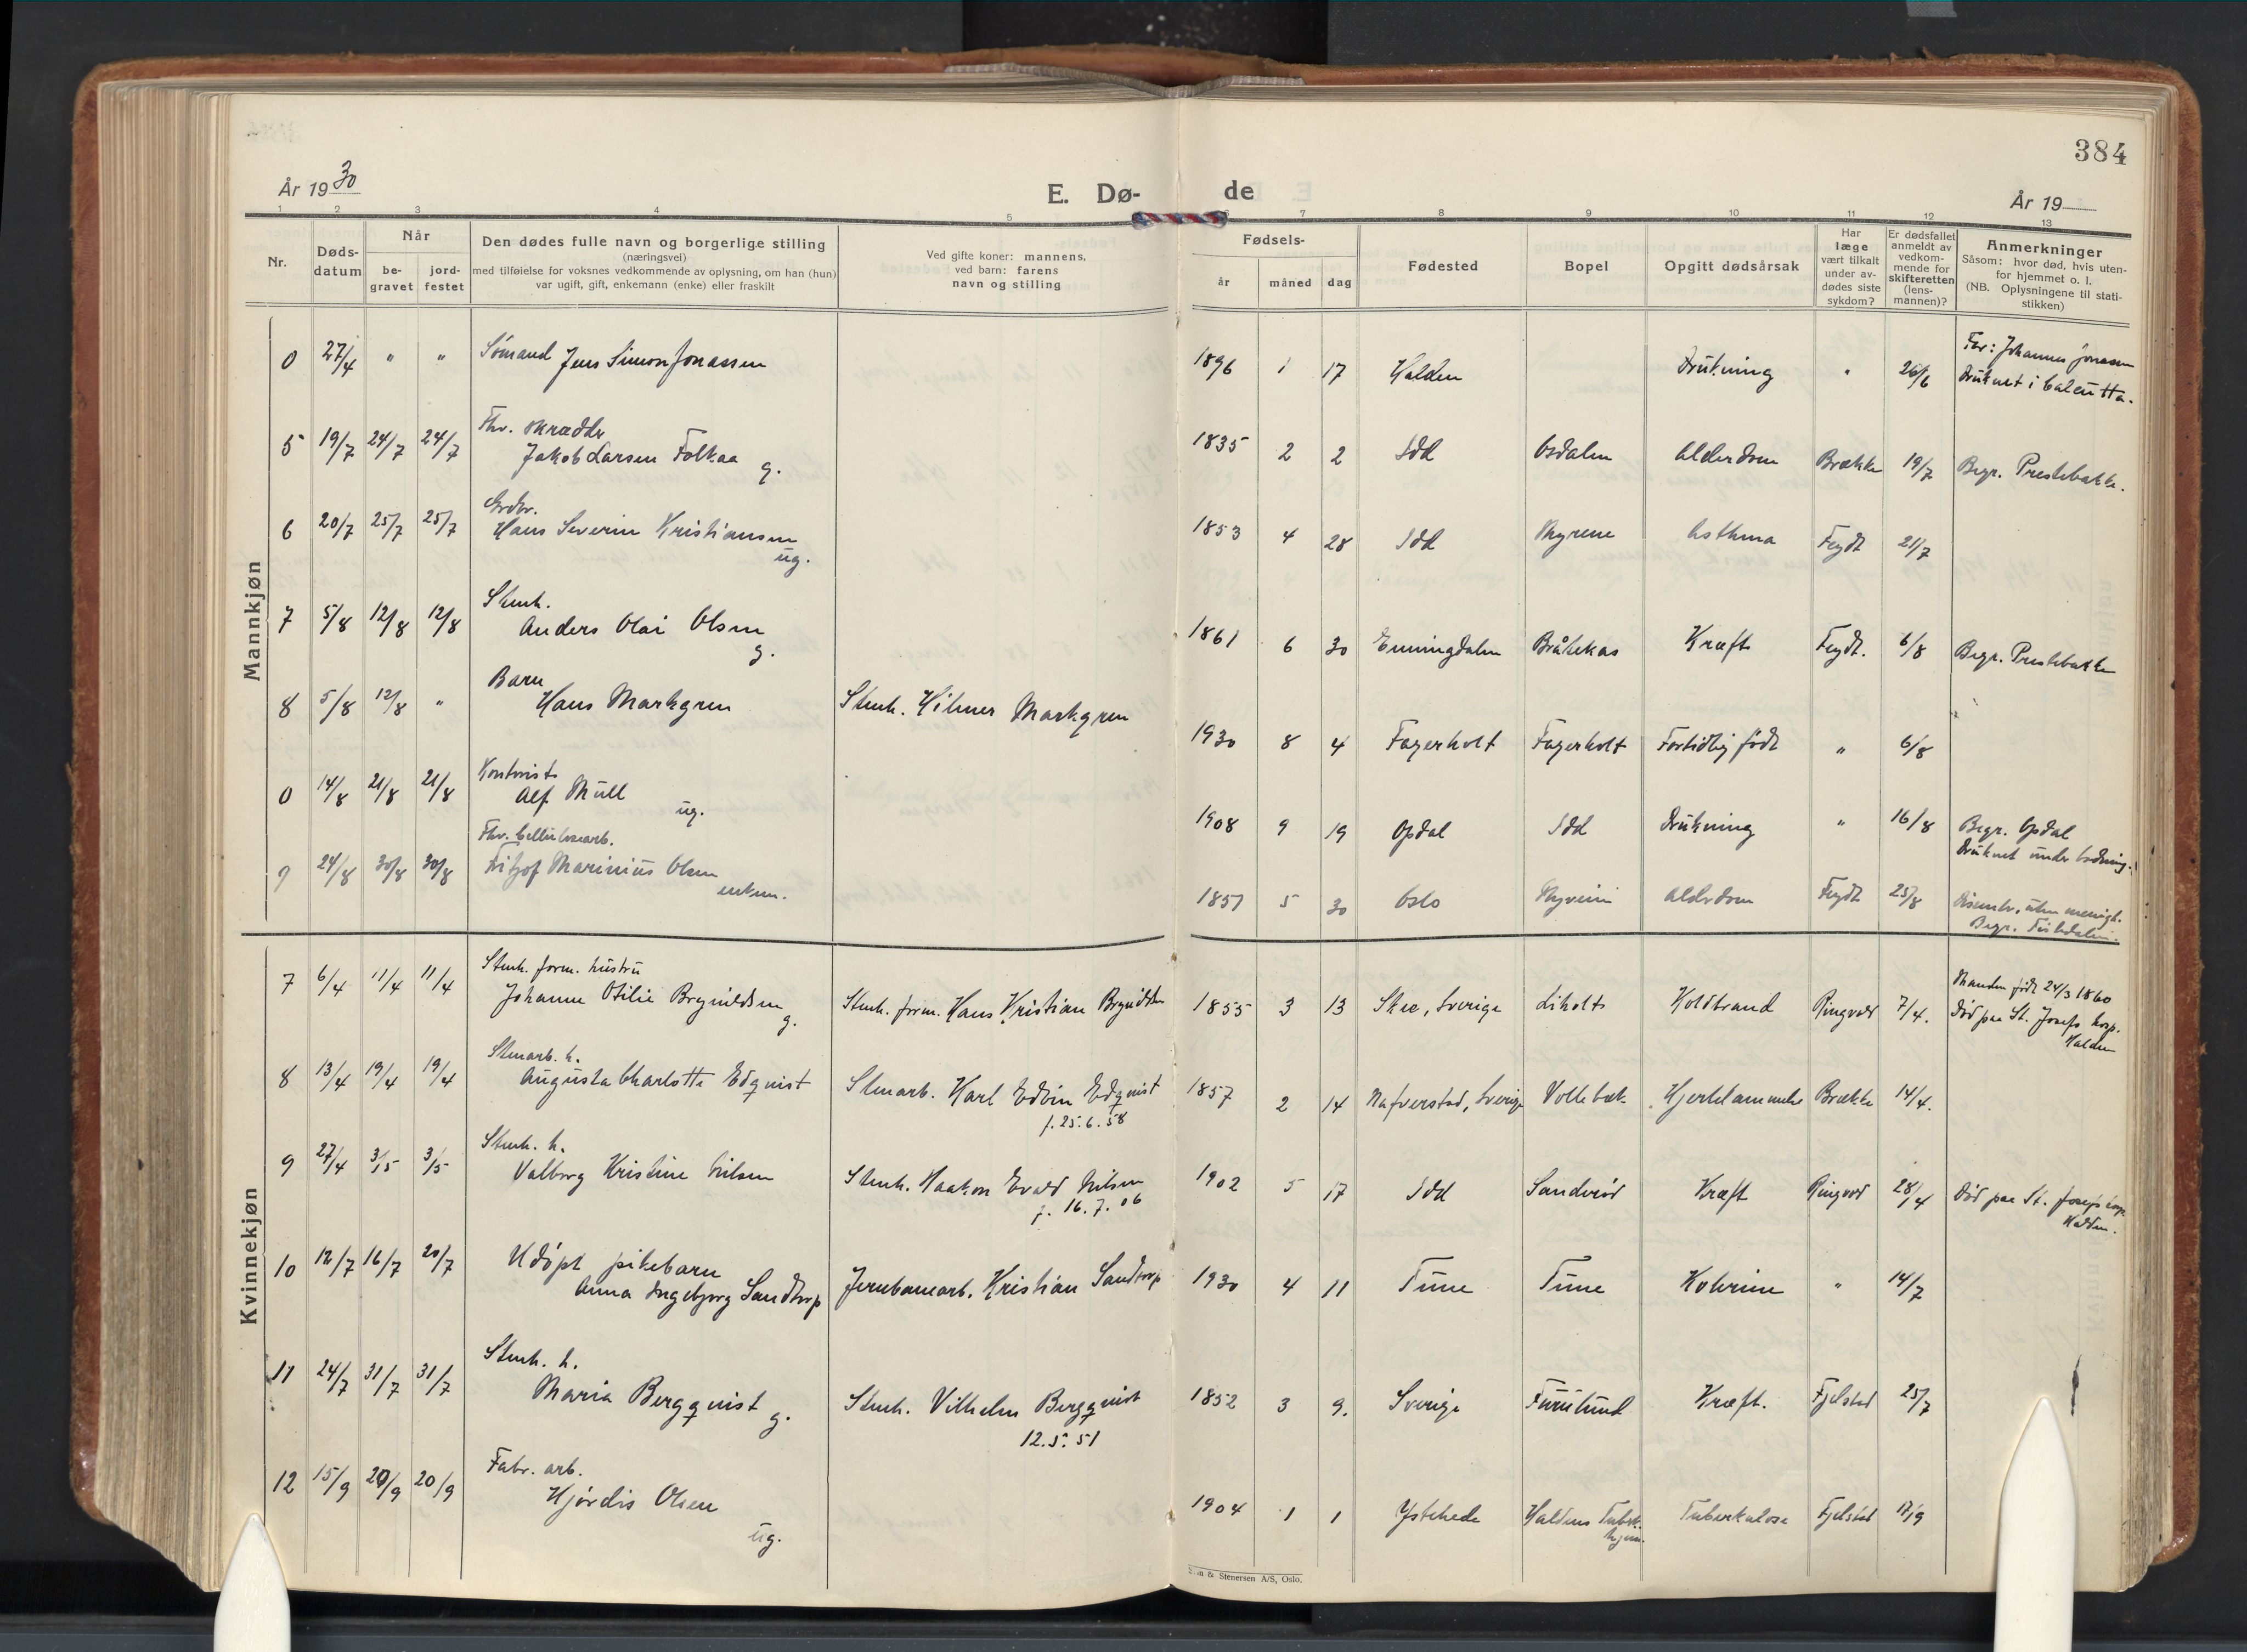 384
År 1930
E. Dø-
de
År 19
1 2 3 4 5 6 7 8 9 10 11 12 13
Nr.
Døds-
datum
Når
be-
gravet
jord-
festet
Den dødes fulle navn og borgerlige stilling
(næringsvei)
med tilføielse for voksnes vedkommende av oplysning, om han (hun)
var ugift, gift, enkemann (enke) eller fraskilt
Ved gifte koner: mannens,
ved barn: farens
navn og stilling
Fødsels-
år måned dag
Fødested
Bopel
Opgitt dødsårsak
Har
læge
vært tilkalt
under av-
dødes siste
sykdom?
Er dødsfallet
anmeldt av
vedkom-
mende for
skifteretten
(lens-
mannen)?
Anmerkninger
Såsom: hvor død, hvis uten-
for hjemmet o. l.
(NB. Oplysningene til stati-
stikken)
Mannkjøn
0 27/4 " " Sömand Jens Simon Jonassen 1896 1 17 Halden Drukning " 26/6 Far: Johannes Jonassen
Druknet i Calcutta.
Fhv. skrædder
5 19/7 24/7 24/7 Jakob Larsen Folkaa g. 1835 2 2 Idd Osdalen Alderdom Brække 19/7 Begr. Prestebakke.
Grdbr.
6 20/7 25/7 25/7 Hans Severin Kristiansen ug. 1853 4 28 Idd Myrene Asthma Feydt 21/7
Stenh.
7 5/8 12/8 12/8 Anders Olai Olsen g. 1861 6 30 Enningdalen Bråtekas Kræft Feydt. 6/8 Begr. Prestebakke
Barn
8 5/8 12/8 " Hans Markgren Stenh. Hilmer Markgren 1930 8 4 Fagerholt Fagerholt Fortidlig født " 6/8
Kontorist
0 14/8 21/8 21/8 Alf Müll ug. 1908 9 19 Opdal Idd Drukning " 16/8 Begr. Opdal
Druknet under badning.
Fhv. Cellulosearb.
9 24/8 30/8 30/8 Fritjof Marinius Olsen enkem. 1851 5 30 Oslo Alderdom Feydt 25/8 Dissenter, uten menigh.
Begr. Tistedalen.
Kvinnekjøn
Stenh. form. hustru
7 6/4 11/4 11/4 Johanne Otilie Brynildsen g. Stenh. form. Hans Kristian Brynildsen 1855 3 13 Skee, Sverige Liholt Koldbrand Ringvold 7/4. Manden født 24/3 1860
Död paa St. Josefs hosp.
Halden
Stenarb. h.
8 13/4 19/4 19/4 Augusta Charlotte Edquist Stenarb. Karl Edvin Edquist 1857 2 14 Nafverstad, Sverige Vollebæk Hjertelammelse Brække 14/4.
f. 25.6.58
Stenh. h.
9 27/4 3/5 3/5 Valborg Kristine Nilsen Stenh. Haakon Evald Nilsen 1902 5 17 Idd Sandviod Kræft Ringvold 28/4 Död paa St. Josefs hosp.
f. 16.7.06
Halden.
Udöpt pikebarn
10 12/7 16/7 20/7 Anna Ingebjorg Sandtorp Jernbanearb. Kristian Sandtorp 1930 4 11 Tune Tune Kolerine " 14/7
Stenh. h.
11 24/7 31/7 31/7 Maria Bergquist g. Stenh. Vilhelm Bergquist 1852 3 9. Sverige Furulund Kræft. Fjelstad 25/7
12.5.51
Fabr. arb.
12 15/9 20/9 20/9 Hjördis Olsen ug. 1904 1 1 Ystehede Haldens Tubk.
hjem. Tuberkulose Fjelstad 17/9
& Stenersen A/S, Oslo.